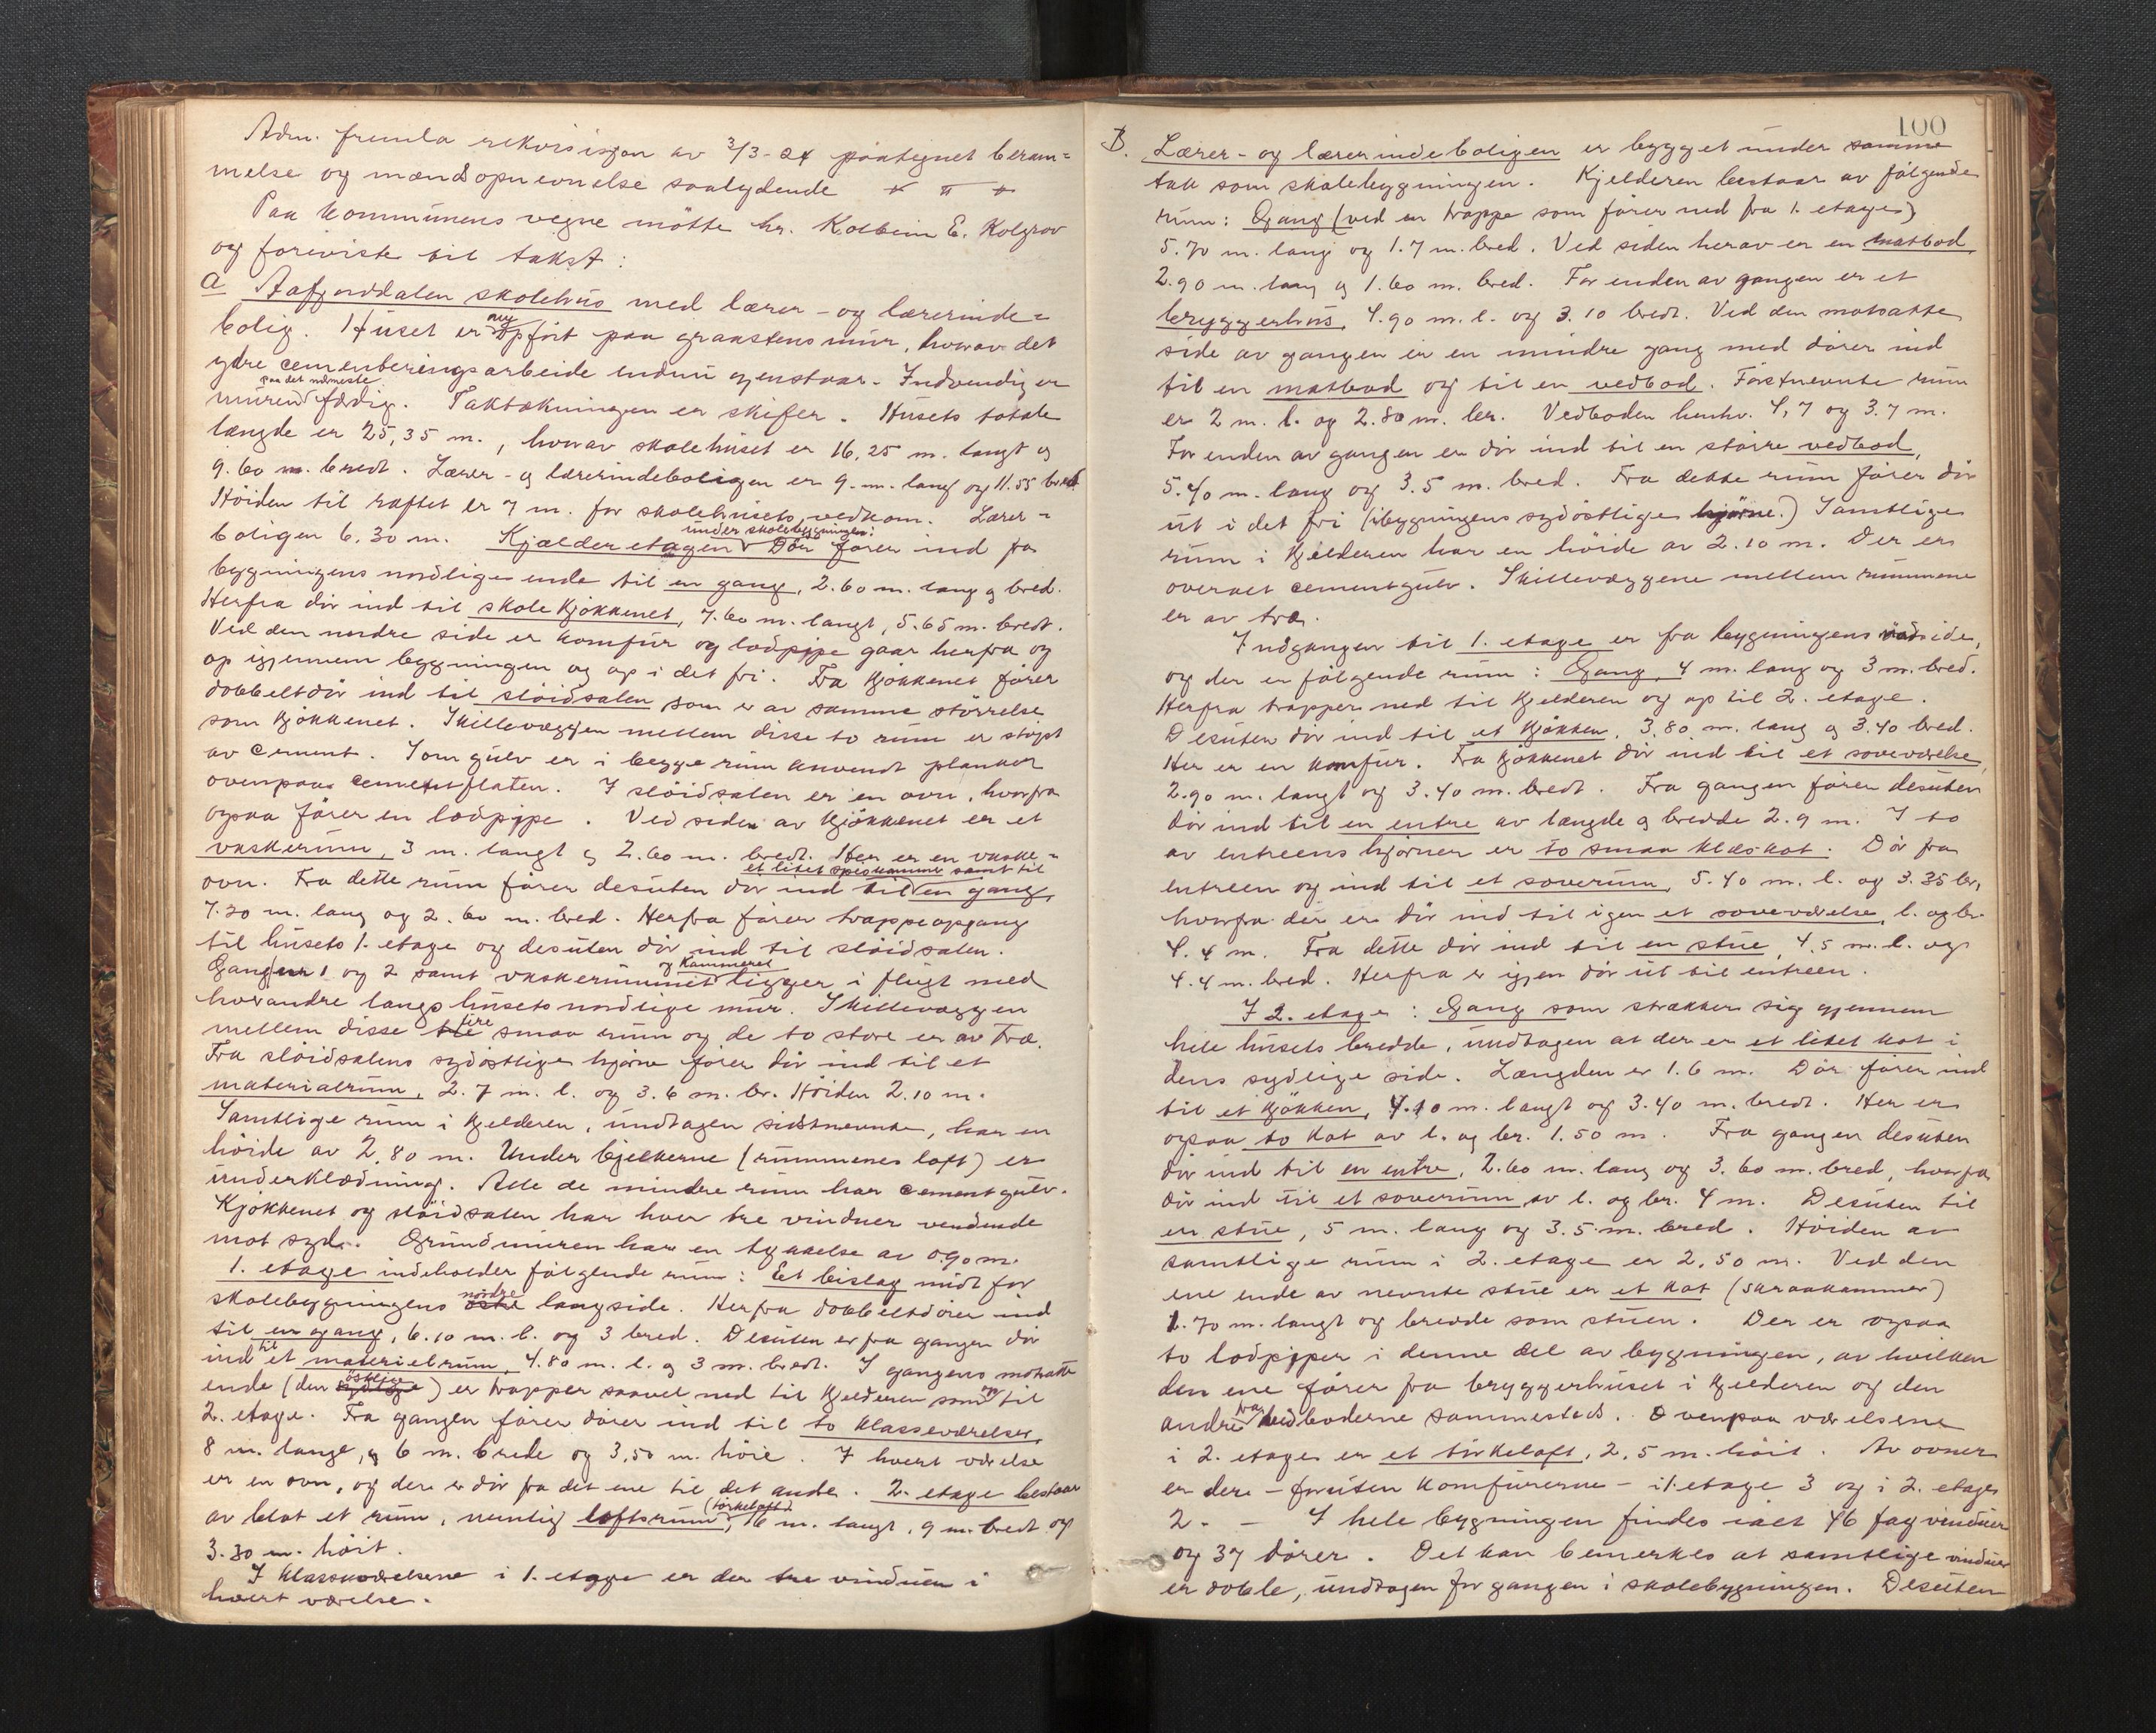 Adm. fremla rekvisisjon av 3/3-24 paategnet beram=
melse og mændsopnevnelse saalydende
Paa kommunens vegne mötte hr. Kolbein E. Kolgrov
og foreviste til takst:
a Aafjorddalen skolehus med lærer- og lærerinde=
bolig. Huset er ny opfört paa graastens mur, hvorav det
ydre cementeringsarbeide endnu gjenstaar. Indvendig er
muren paa det nærmeste færdig. Taktækningen er skifer. Husets totale
længde er 25,35 m., hvorav skolehuset er 16,25 m. langt og
9.60 m. bredt. Lærer- og lærerindeboligen er 9.m. lang og 11.55 bred
Höiden til raftet er 7 m. for skolehusets vedkom. Lærer=
boligen 6.30 m. Kjælderetagen under skolebygningen: Dör förer ind fra
bygningens nordlige ende til en gang, 2.60 m. lang og bred.
Herfra dör ind til skolekjökkenet, 7.60 m. langt, 5.65 m. bredt.
Ved den nordre side er komfur og lodpipe gaar herfra og
op igjennem bygningen og op i det fri. Fra kjökkenet förer
dobbeltdör ind til slöidsalen som er av samme störrelse
som kjökkenet. Skillevæggen mellem disse to rum er stöpt
av cement. Som gulv er i begge rum anvendt planker
ovenpaa cementflaten. I slöidsalen er en ovn, hvorfra
ogsaa förer en lodpipe. Ved siden av kjökkenet er et
vaskerum, 3 m. langt og 2.60 m. bredt. Her er en vaske=
ovn. Fra dette rum förer desuten dör ind til et litet spiskammer samt til en gang,
7.30 m. lang og 2.60 m. bred. Herfra förer trappeopgang
til husets 1. etage og desuten dör ind til slöidsalen.
Gang nr 1 og 2 samt vaskerummet og kammeret ligger i flugt med
hverandre langs husets nordlige mur. Skillevæggen
mellem disse tre fire smaa rum og de to store er av Træ.
Fra slöidsalens sydöstlige hjörne förer dör ind til et
materialrum, 2.7 m. l. og 3.6 m. br. Höiden 2.10 m.
Samtlige rum i kjelderen, undtagen sidstnevnte, har en
höide av 2.80 m. Under bjelkerne (rummenes loft) er
underklædning. Alle de mindre rum har cementgulv.
Kjökkenet og slöidsalen har hver tre vinduer vendende
mot syd. Grundmuren har en tykkelse av 0.90 m.
1. etage indeholder fölgende rum: Et bislag midt for
skolebygningens östre nordre langside. Herfra dobbeltdörer ind
til en gang, 6.10 m. l. og 3 bred. Desuten er fra gangen dör
ind til et materielrum, 4.80 m. l. og 3 m. bredt. I gangens motsatte
ende (den sydlige östlige) er trapper saavel ned til kjelderen som op til
2. etage. Fra gangen förer dörer ind til to klasseværelser,
8 m. lange, og 6 m. brede og 3,50 m. höie. I hvert værelse
er en ovn, og der er dör fra det ene til det andre. 2. etage bestaar
av blot et rum, nemlig loftsrum (törkeloft), 16 m. langt, 9 m. bredt og
3.30 m. höit.
I klasseværelsene i 1. etage er der tre vinduer i
hvert værelse.
100
B. Lærer- og lærerindeboligen er bygget under samme
tak som skolebygningen. Kjelderen bestaar av fölgende
rum: Gang (ved en trappe som förer ned fra 1. etage)
5.70 m. lang og 1.7 m. bred. Ved siden herav er en matbod,
2.90 m. lang og 1.60 m. bred. For enden av gangen er et
bryggerhus, 4.90 m. l. og 3.10 bredt. Ved den motsatte
side av gangen er en mindre gang med dörer ind
til en matbod og til en vedbod. Förstnevnte rum
er 2 m. l. og 2.80 m. br. Vedboden henhv. 4,7 og 3.7 m.
For enden av gangen er dör ind til en större vedbod,
5.40 m. lang og 3.5 m. bred. Fra dette rum förer dör
ut i det fri (i bygningens sydöstlige hjörne.) Samtlige
rum i kjelderen har en höide av 2.10 m. Der er
overalt cementgulv. Skillevæggene mellem rummene
er av træ.
Indgangen til 1. etage er fra bygningens nordside,
og der er fölgende rum: Gang, 4 m. lang og 3 m. bred.
Herfra trapper ned til kjelderen og op til 2. etage.
Desuten dör ind til et kjökken, 3.80 m. lang og 3.40 bred.
Her er en komfur. Fra kjökkenet dör ind til et soveværelse,
2.90 m. langt og 3.40 m. bredt. Fra gangen förer desuten
dör ind til en entre av længde og bredde 2.9 m. I to
av entreens hjörner er to smaa klæskot. Dör fra
entreen og ind til et soverum, 5.40 m. l. og 3.35 br,
hvorfra der er dör ind til igjen et soveværelse, l. og br.
4.4 m. Fra dette dör ind til en stue, 4,5 m. l. og
4.4 m. bred. Herfra er igjen dör ut til entreen.
I 2. etage: Gang som strækker sig gjennem
hele husets bredde, undtagen at der er et litet kot i
dens sydlige side. Længden er 1.6 m. Dör förer ind
til et kjökken, 4.10 m. langt og 3.40 m. bredt. Her er
ogsaa to kot av l. og br. 1.50 m. Fra gangen desuten
dör ind til en entre, 2.60 m. lang og 3.60 m. bred, hvorfra
dör ind til et soverum av l. og br. 4 m. Desuten til
en stue, 5 m. lang og 3.5 m. bred. Höiden av
samtlige rum i 2. etage er 2,50 m. Ved den
ene ende av nevnte stue er et kot (skraakammer)
1.70 m. langt og bredde som stuen. Der er ogsaa
to lodpiper i denne del av bygningen, av hvilken
den ene förer fra bryggerhuset i kjelderen og den
andre fra vedboderne sammesteds. Ovenpaa værelsene
i 2. etage er et törkeloft, 2,5 m. höit. Av ovner
er der - foruten komfurerne - i 1. etage 3 og i 2. etage
2. - I hele bygningen findes ialt 46 fag vinduer
og 37 dörer. Det kan bemerkes at samtlige vinduer
er doble, undtagen for gangen i skolebygningen. Desuten